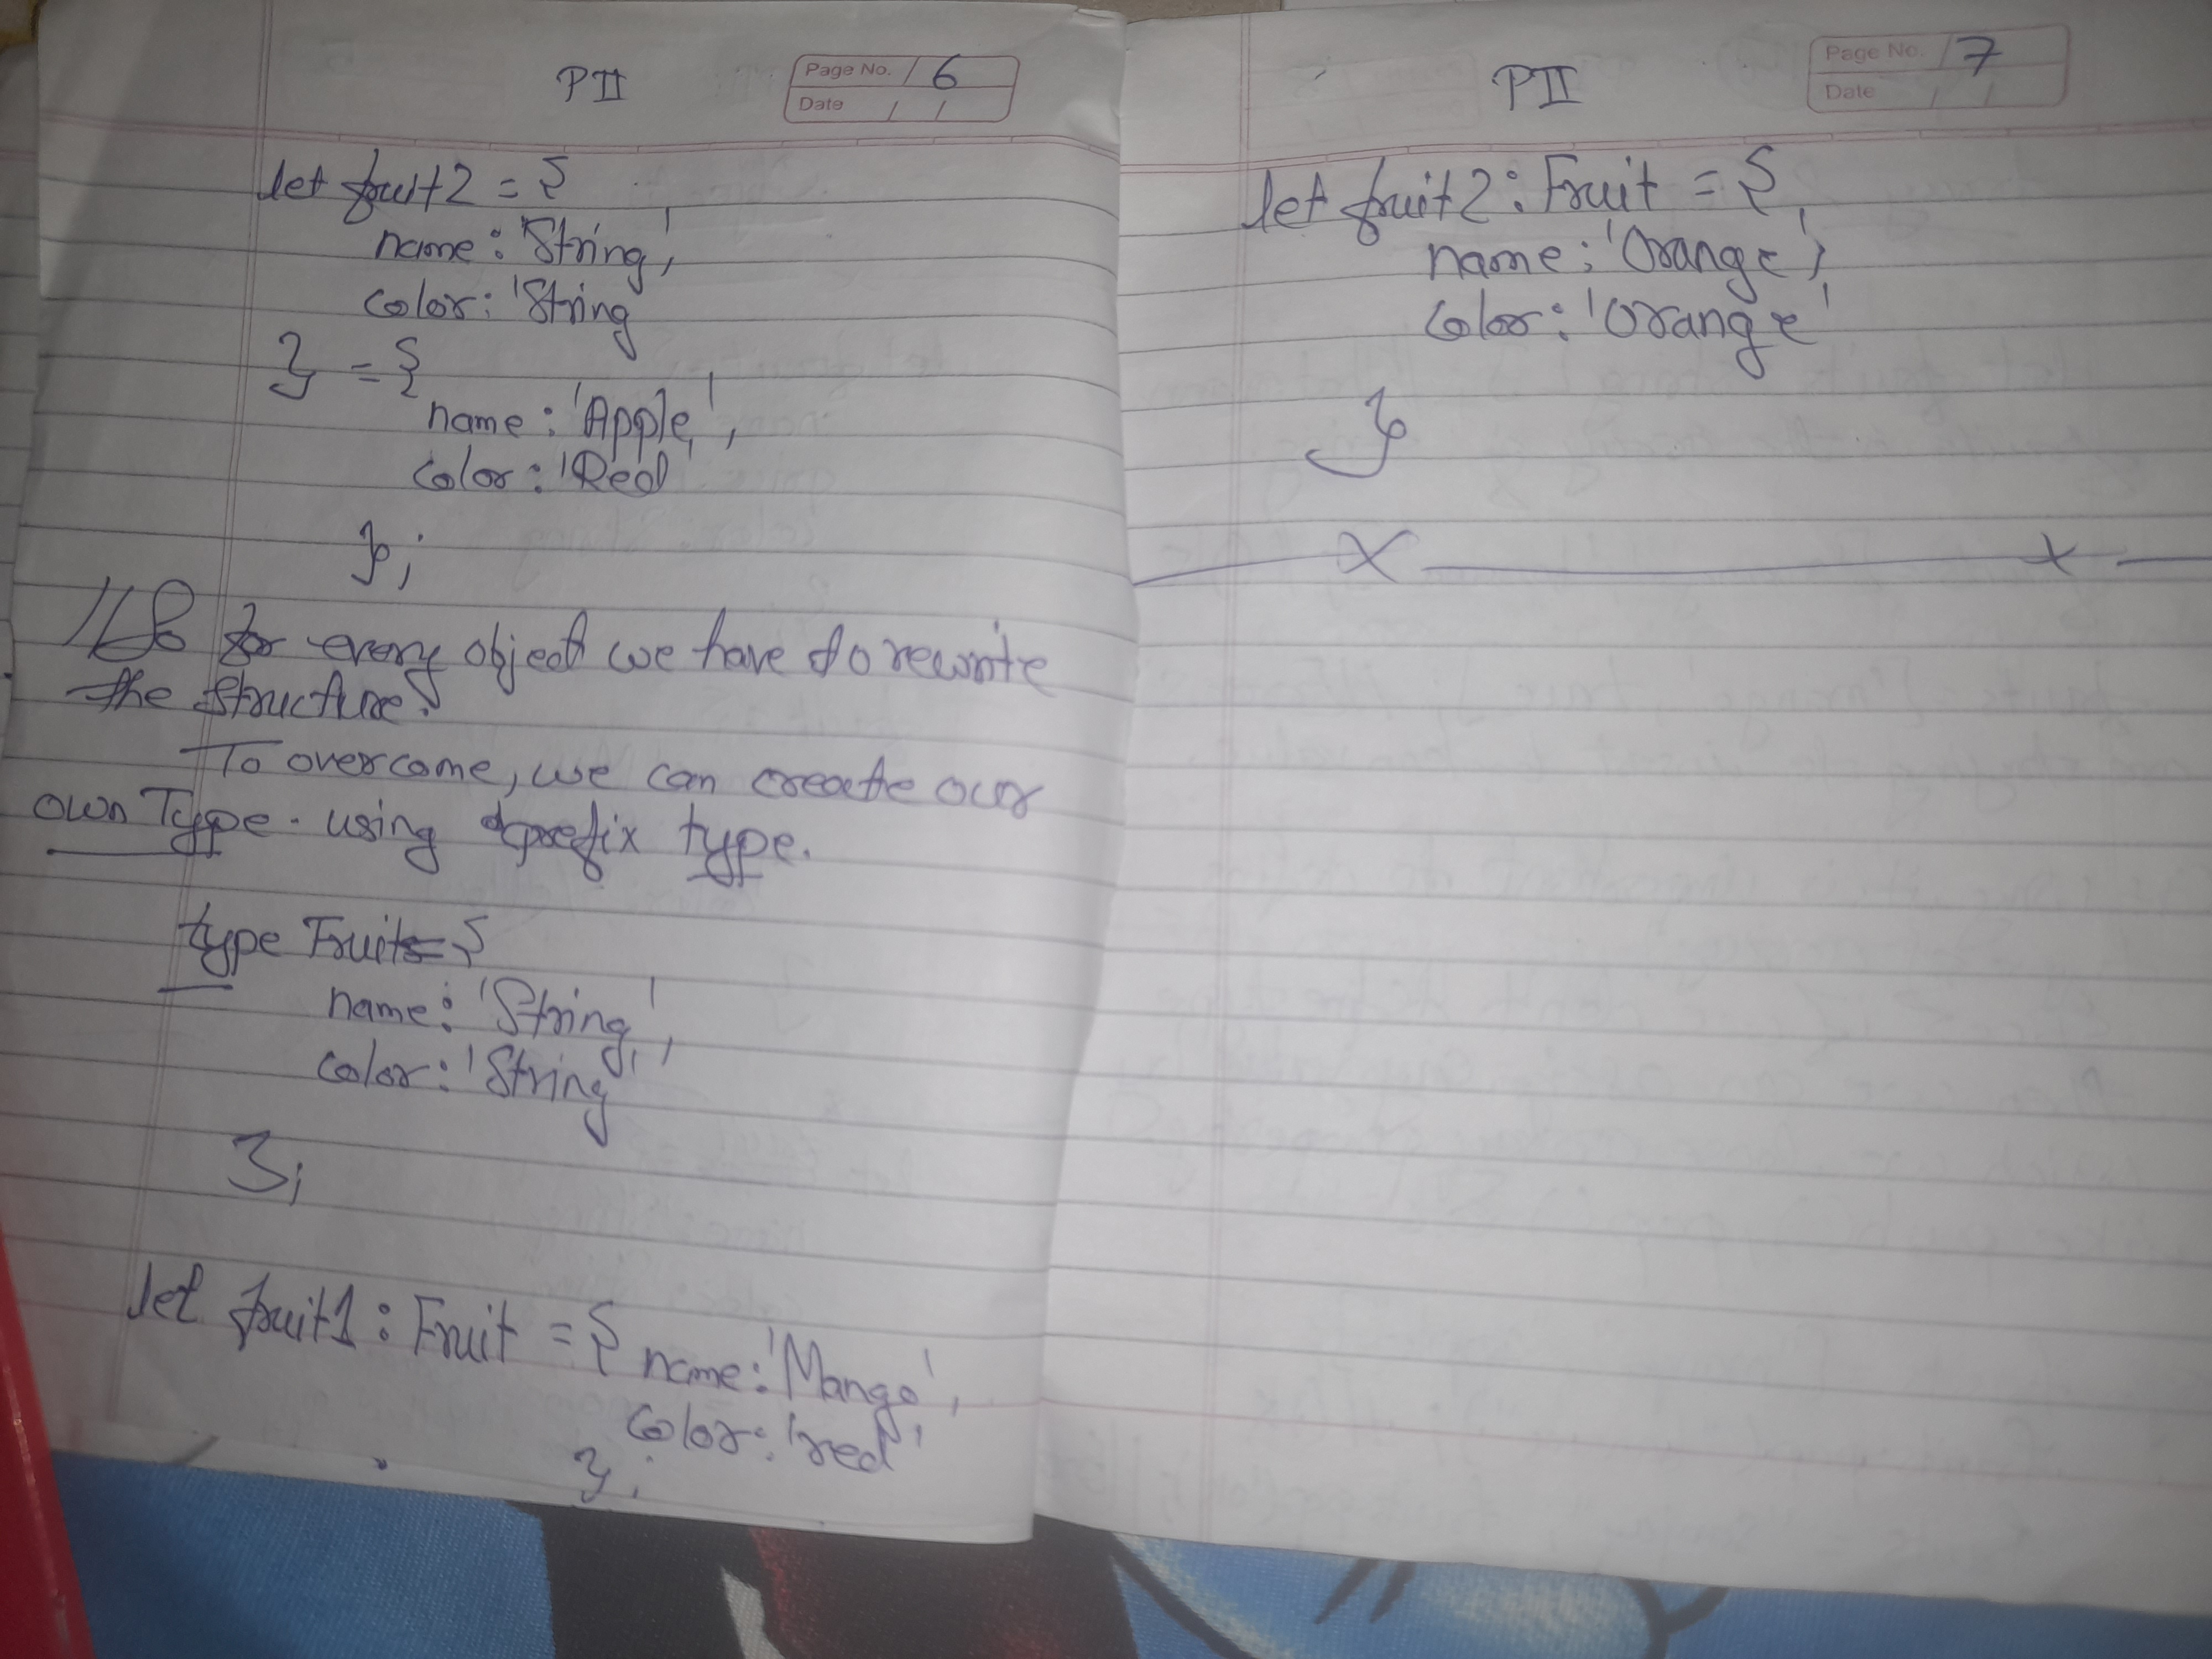 PII
Page No. 6
Date / /
let fruit2 = {
name: 'String',
color: 'String
} = {
name: 'Apple',
color: 'Red'
};
// So for every object we have to rewrite
the structure.
To overcome, we can create our
own Type. using prefix type.
type Fruit = {
name: 'String',
color: 'String'
};
let fruit1: Fruit = { name: 'Mango',
color: 'red'
};
PII
Page No. 7
Date / /
let fruit2: Fruit = {
name: 'Orange',
color: 'Orange'
}
x x